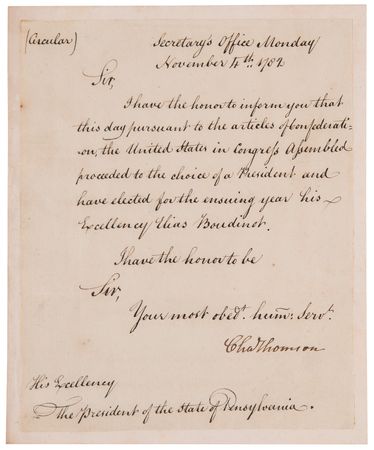 (Circular)
Secretary's Office Monday
November 4th. 1782
Sir,
I have the honor to inform you that
this day pursuant to the articles of Confederati-
on, the United States in Congress Assembled
proceeded to the choice of a President and
have elected for the ensuing year his
Excellency Elias Boudinot.
I have the honor to be
Sir,
Your most obedt. hum: Servt.
Cha Thomson
His Excellency
The President of the State of Pensylvania.